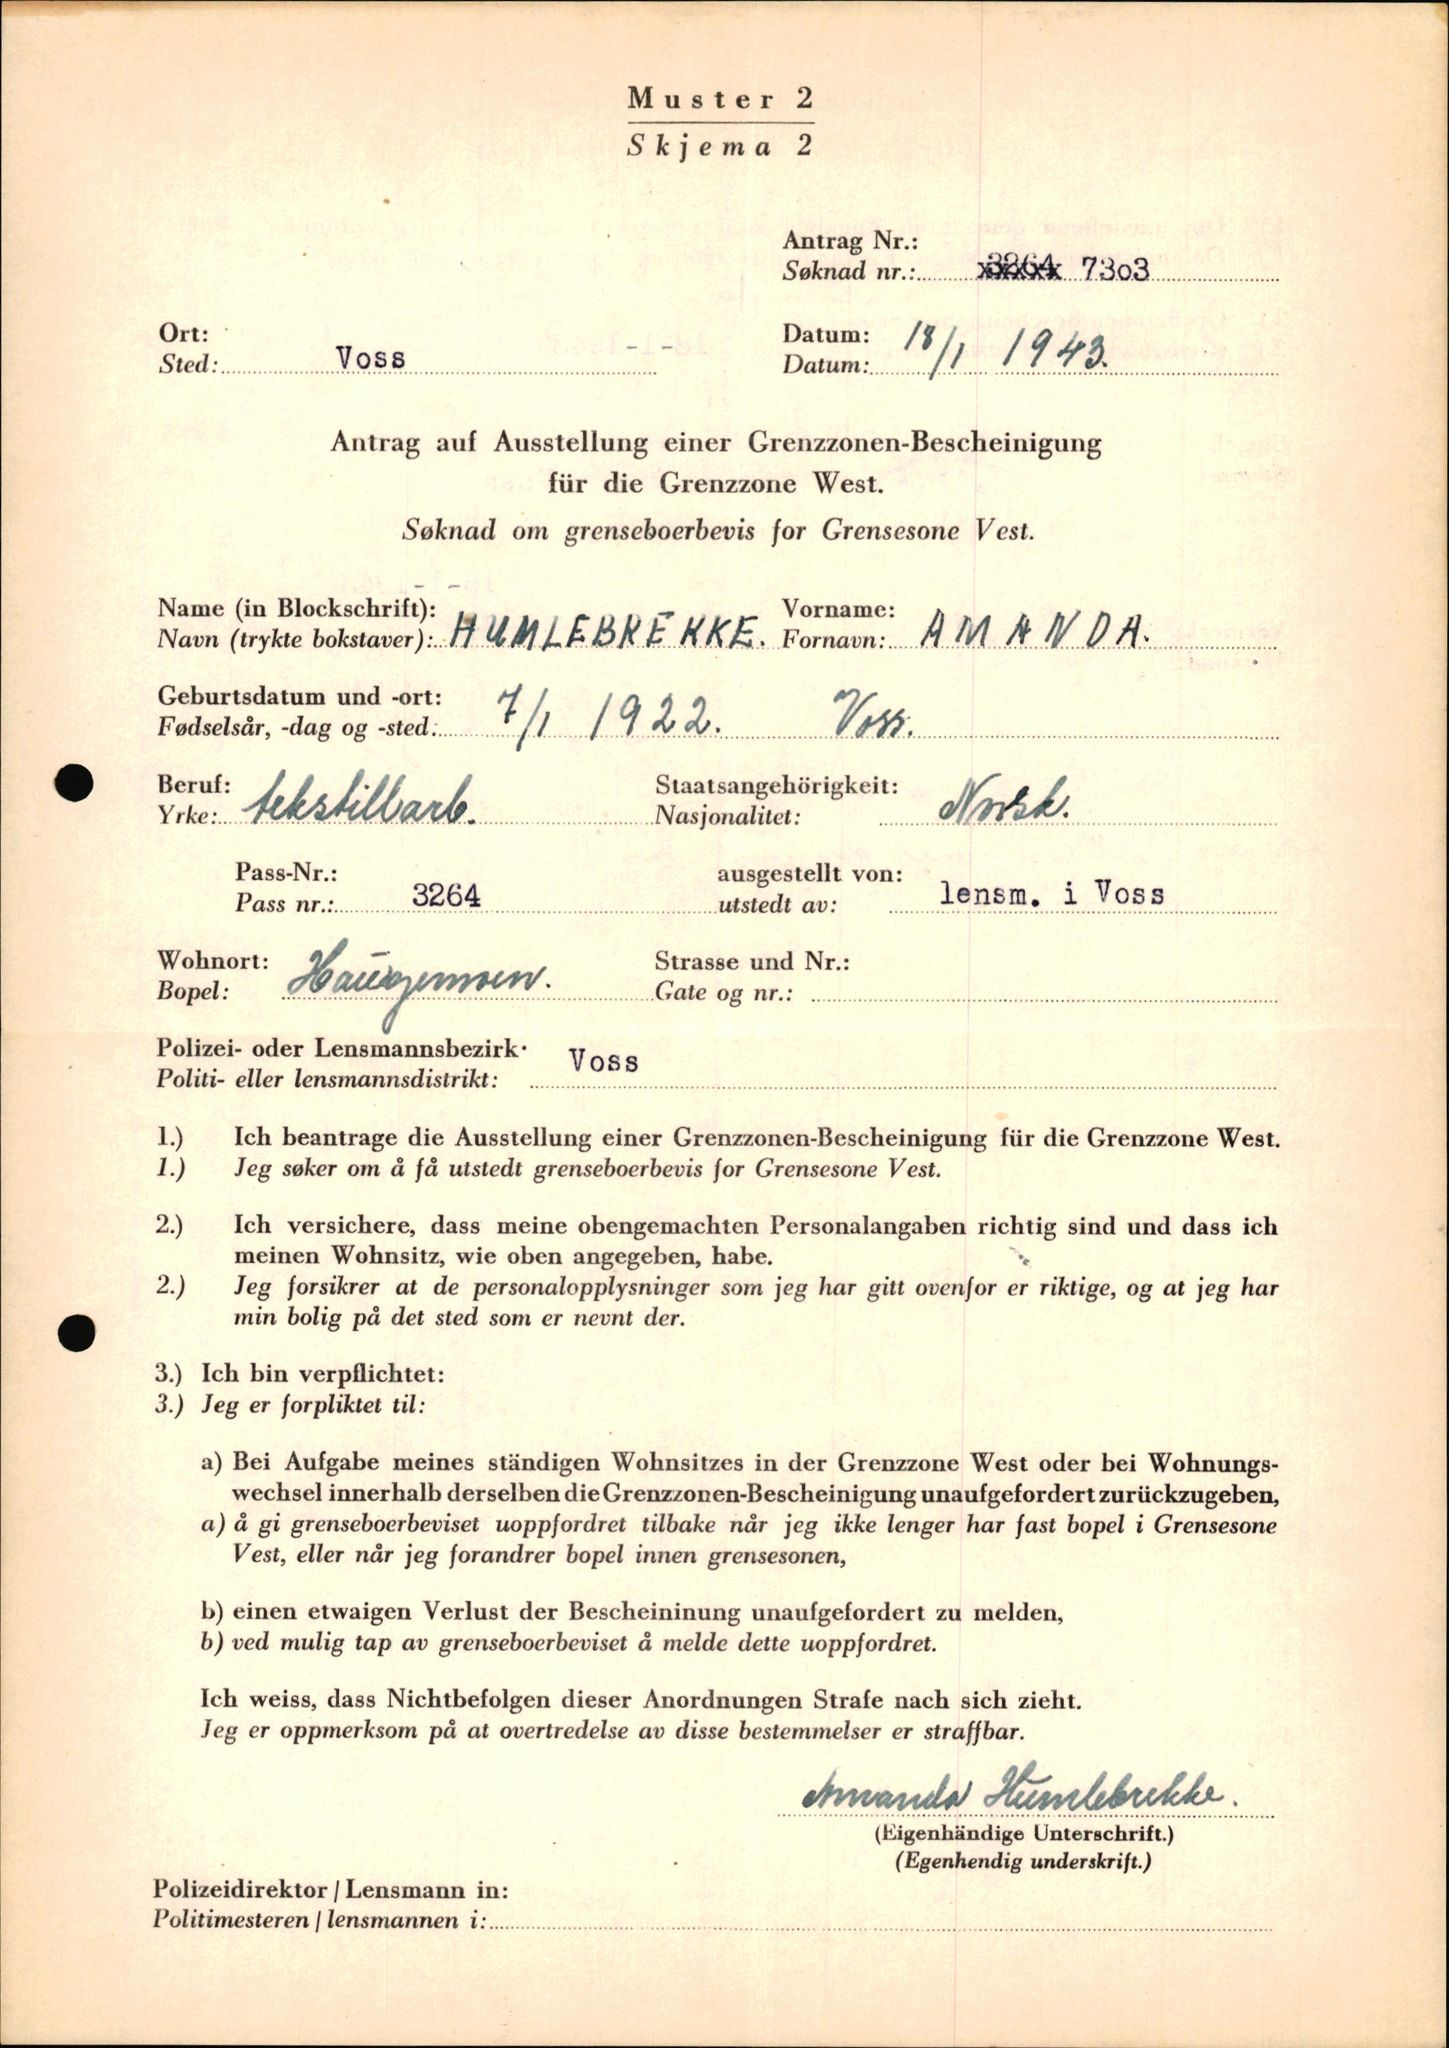 Muster 2
Skjema 2
Antrag Nr.:
Søknad nr.: 3264 7303
Ort:
Sted: Voss
Datum:
Datum: 18/1 1943.
Antrag auf Ausstellung einer Grenzzonen-Bescheinigung
für die Grenzzone West.
Søknad om grenseboerbevis for Grensesone Vest.
Name (in Blockschrift): Vorname:
Navn (trykte bokstaver): HUMLEBREKKE. Fornavn: AMANDA.
Geburtsdatum und -ort:
Fødselsår, -dag og -sted: 7/1 1922. Voss.
Beruf: Staatsangehörigkeit:
Yrke: tekstilarb. Nasjonalitet: Norsk.
Pass-Nr.: ausgestellt von:
Pass nr.: 3264 utstedt av: lensm. i Voss
Wohnort: Strasse und Nr.:
Bopel: Haugemoen. Gate og nr.:
Polizei- oder Lensmannsbezirk:
Politi- eller lensmannsdistrikt: Voss
1.) Ich beantrage die Ausstellung einer Grenzzonen-Bescheinigung für die Grenzzone West.
1.) Jeg søker om å få utstedt grenseboerbevis for Grensesone Vest.
2.) Ich versichere, dass meine obengemachten Personalangaben richtig sind und dass ich
meinen Wohnsitz, wie oben angegeben, habe.
2.) Jeg forsikrer at de personalopplysninger som jeg har gitt ovenfor er riktige, og at jeg har
min bolig på det sted som er nevnt der.
3.) Ich bin verpflichtet:
3.) Jeg er forpliktet til:
a) Bei Aufgabe meines ständigen Wohnsitzes in der Grenzzone West oder bei Wohnungs-
wechsel innerhalb derselben die Grenzzonen-Bescheinigung unaufgefordert zurückzugeben,
a) å gi grenseboerbeviset uoppfordret tilbake når jeg ikke lenger har fast bopel i Grensesone
Vest, eller når jeg forandrer bopel innen grensesonen,
b) einen etwaigen Verlust der Bescheininung unaufgefordert zu melden,
b) ved mulig tap av grenseboerbeviset å melde dette uoppfordret.
Ich weiss, dass Nichtbefolgen dieser Anordnungen Strafe nach sich zieht.
Jeg er oppmerksom på at overtredelse av disse bestemmelser er straffbar.
Amanda Humlebrekke.
(Eigenhändige Unterschrift.)
(Egenhendig underskrift.)
Polizeidirektor / Lensmann in:
Politimesteren / lensmannen i: